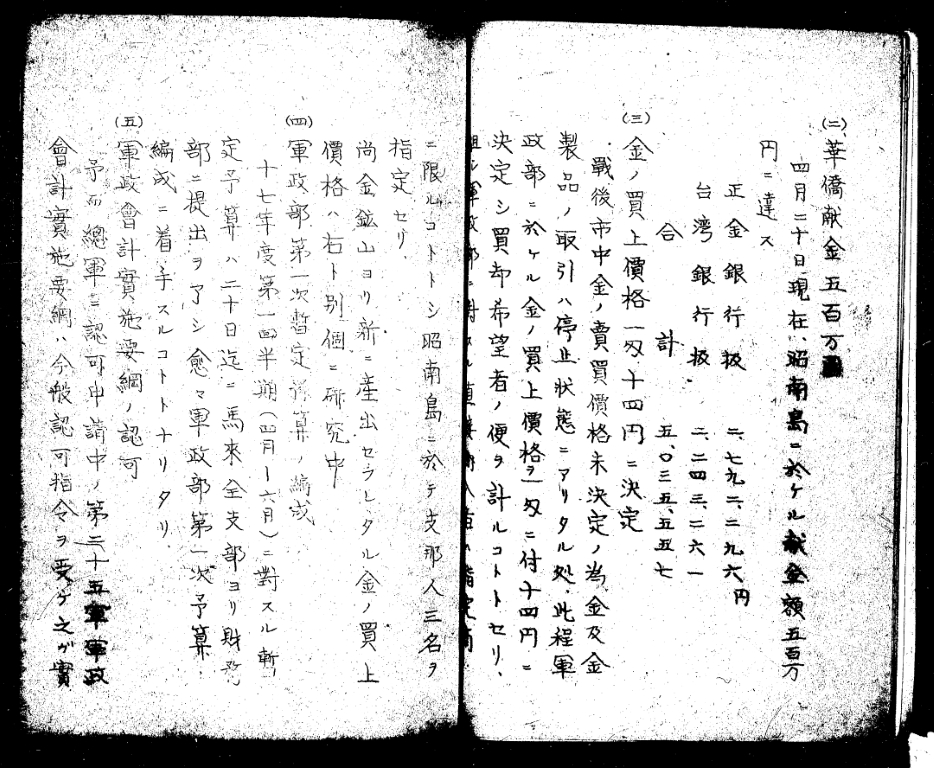 ㈡華僑献金五百万
四月二十日現在、昭南島ニ於ケル献金額五百万
円ニ達ス
正金銀行扱 二、七九二、二九六円
台湾銀行扱 二、二四三、二六一
合計 五、〇三五、五五七
㈢金ノ買上價格一匁十四円ニ決定
戰後市中金ノ賣買價格未決定ノ為金及金
製品ノ取引ハ停止狀態ニアリタル処、此程軍
政部ニ於ケル金ノ買上價格ヲ一匁ニ付十四円ニ
決定シ買却希望者ノ便ヲ計ルコトトセリ、
ニ限ルコトトシ昭南島ニ於テ支那人三名ヲ
指定セリ
尚金鉱山ヨリ新ニ産出セラレタル金ノ買上
價格ハ右ト別個ニ研究中
㈣軍政部第一次暫定予算ノ編成
十七年度第一四半期(四月―六月)ニ對スル暫
定予算ハ二十日迄ニ馬來全支部ヨリ財務
部ニ提出ヲ了シ愈々軍政部第一次予算
編成ニ着手スルコトトナリタリ、
㈤軍政會計實施要綱ノ認可
予而總軍ニ認可申請中ノ第二十五軍軍政
會計實施要綱ハ今般認可指令ヲ受ケ之ガ實